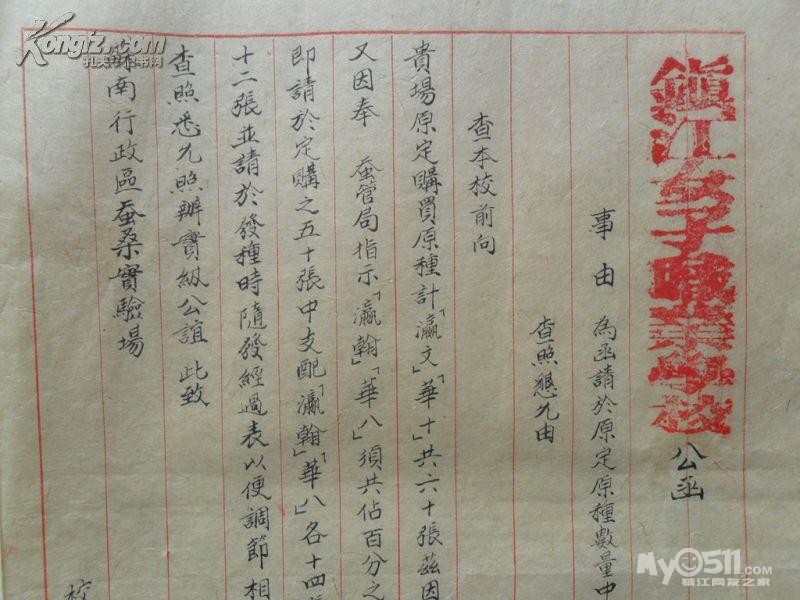 鎮江女子職業學校 公函
事由 為函請於原定原種數量中
查照懇允由
查本校前向
貴場原定購買原種計「瀛文」「華十」共六十張茲因
又因奉 蚕管局指示「瀛翰」「華八」須共佔百分之
即請於定購之五十張中支配「瀛翰」「華八」各十四張
十二張並請於發種時隨發經過表以便調節相
查照悉允照辦實級公誼 此致
蘇南行政區蚕桑實驗場
校
Kongfz.com
孔夫子旧书网
My0511.com
镇江网友之家